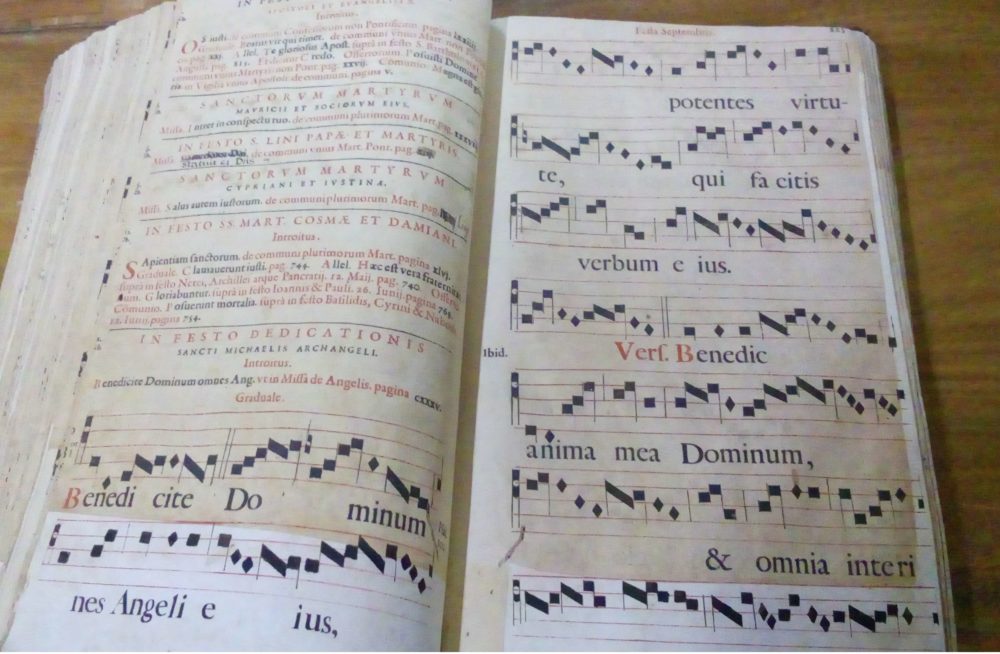 APOSTOLI ET EVANGELISTÆ
Introitus.
OS iusti. de communi Confessorum non Pontificum pagina
Graduale. Beatus vir qui timet. de communi vnius Mart. non
Allel. Te gloriosus Apost. suprà in festo S.
pag. Credo. Offertorium. Posuisti Domine
communi vnius Martyris non Pont. pag. xxvij. Communio. Magna est
in Vigilia vnius Apostoli de communi. pagina v.
SANCTORVM MARTYRVM
MAVRICII ET SOCIORVM EIVS.
Missa. Intret in conspectu tuo. de communi plurimorum Mart. pag.
IN FESTO S. LINI PAPÆ ET MARTYRIS.
Missa. de communi vnius Mart. Pont. pag.
SANCTORVM MARTYRVM
CYPRIANI ET IVSTINÆ.
Missa. Salus autem iustorum. de communi plurimorum Mart. pag.
IN FESTO SS. MART. COSMÆ ET DAMIANI.
Introitus.
SApientiam sanctorum. de communi plurimorum Mart. pagina xlvj.
Graduale. Clamauerunt iusti. pag. 744. Allel. Hæc est vera fraternitas
suprà in festo Nerei, Archillei atque Pancratij. 12. Maij. pag. 740.
Gloriabuntur. suprà in festo Ioannis & Pauli. 26. Iunij. pagina
Communio. Posuerunt mortalia. suprà in festo Basilidis, Cyrini &
12. Iunij. pagina 754.
IN FESTO DEDICATIONIS
SANCTI MICHAELIS ARCHANGELI.
Introitus.
Benedicite Dominum omnes Ang. vt in Missâ de Angelis. pagina cxxxv.
Graduale.
Benedi cite Do minum
nes Angeli e ius,
Festa Septembris.
potentes virtu-
te, qui facitis
verbum e ius.
Ibid. Vers. Benedic
anima mea Dominum,
& omnia interi